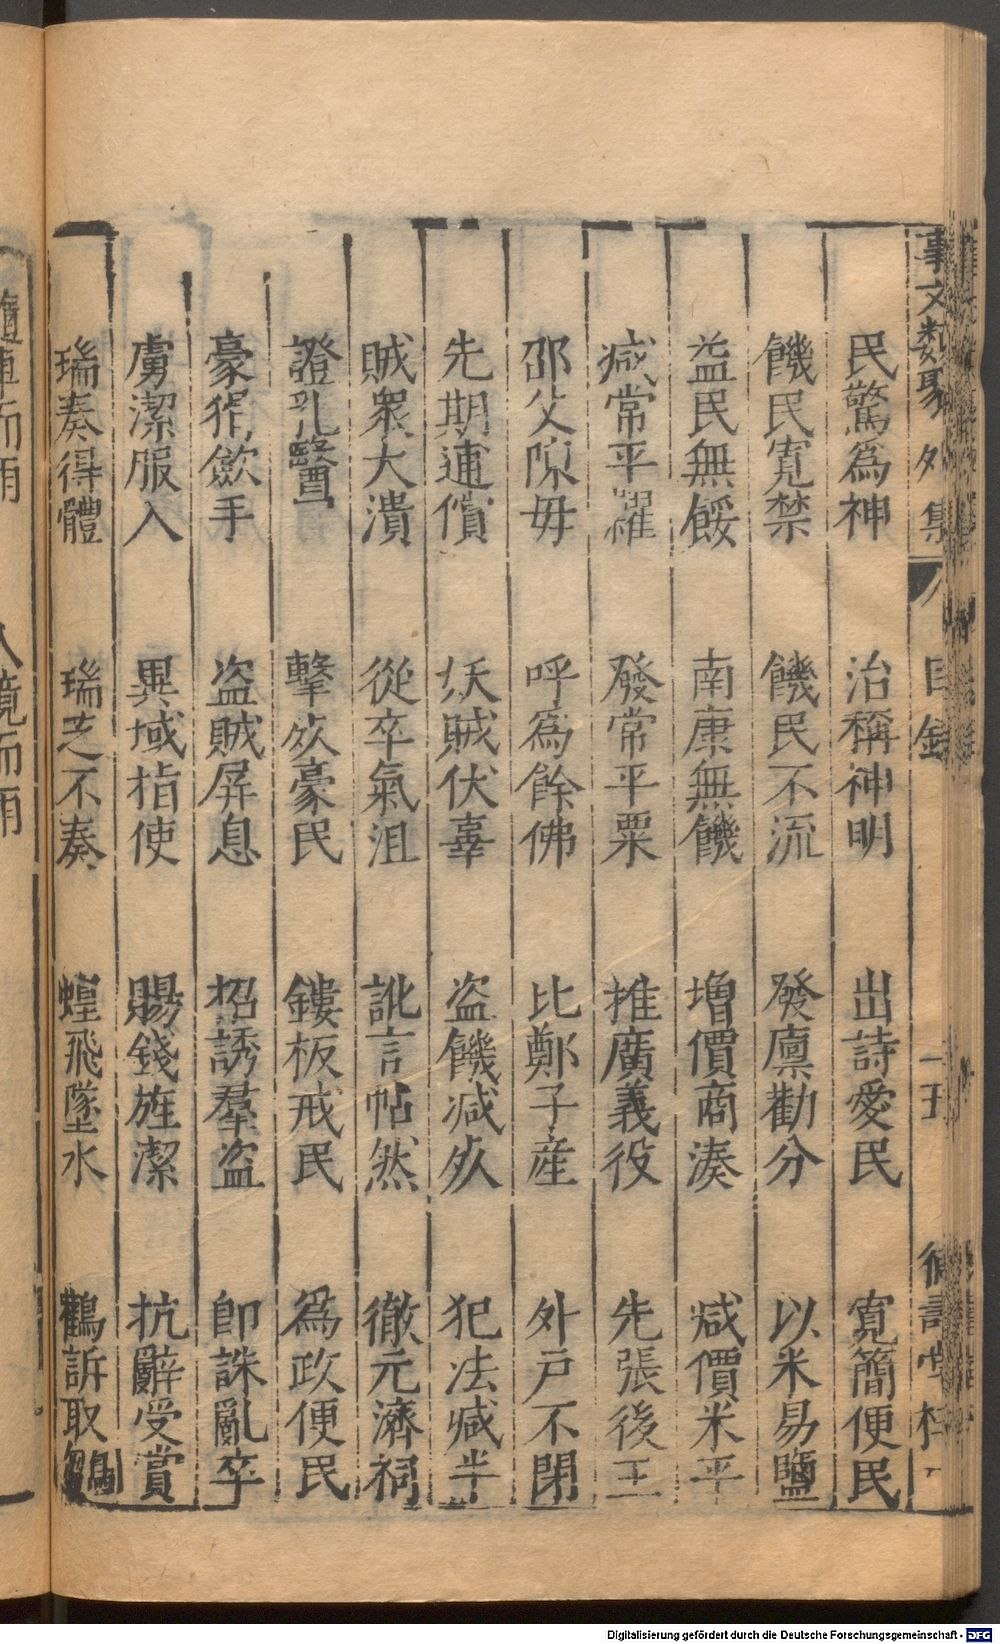 事文類聚外集 目錄
民驚為神 治稱神明 出詩愛民 寛簡便民
饑民寛禁 饑民不流 發廩勸分 以米易鹽
益民無餒 南康無饑 增價商湊 减價米平
减常平糴 發常平粟 推廣義役 先張後王
邵父陳母 呼為餘佛 比鄭子産 外戸不閉
先期逋償 妖賊伏辜 盗饑减死 犯法减半
賊衆大潰 從卒氣沮 訛言帖然 徹元濟祠
證乳醫 擊效豪民 鏤板戒民 為政便民
豪猾歛手 盗賊屏息 招誘羣盗 即誅亂卒
虜潔服入 異域指使 賜錢旌潔 抗辭受賞
瑞奏得體 瑞芝不奏 蝗飛墜水 鶴訴取
入境而雨
Digitalisierung gefördert durch die Deutsche Forschungsgemeinschaft - DFG